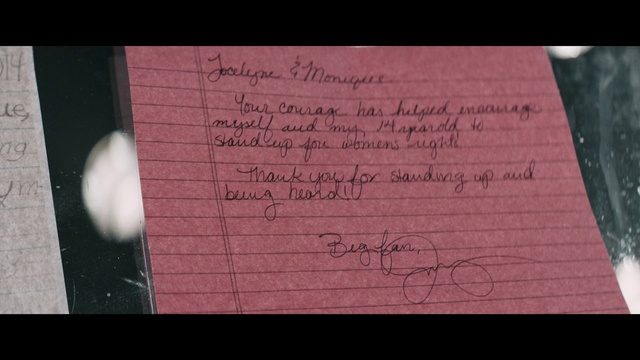 Jocelyne & Monique
Your courage has helped encourage
myself and my 14 yearold to
stand up for womens rights
Thank you for standing up and
being heard!
Big fan,
14
ue,
ng
ym-